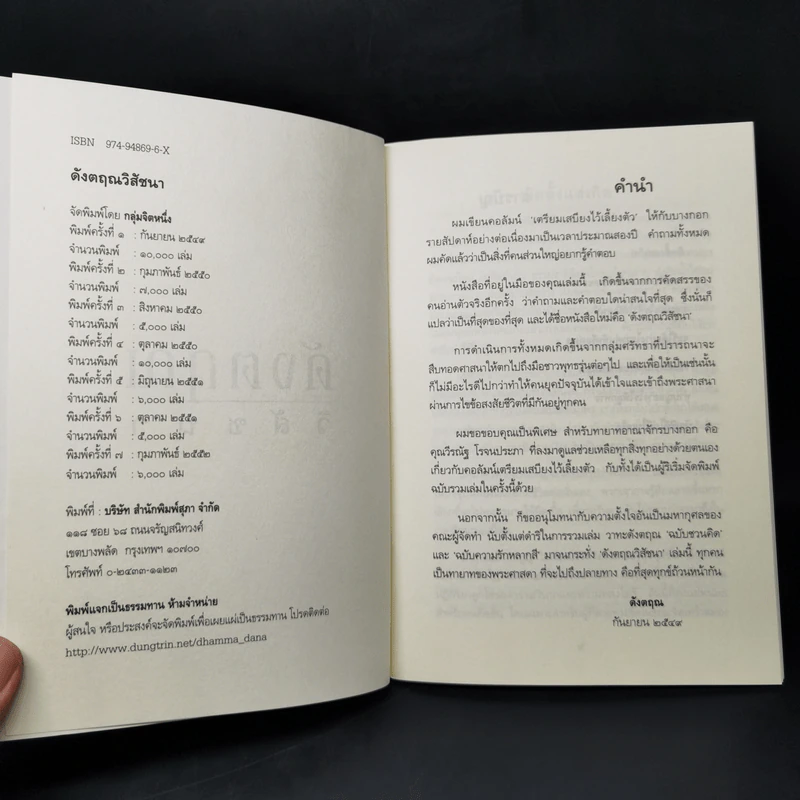 ISBN 974-94869-6-X
ดังตฤณวิสัชนา
จัดพิมพ์โดย กลุ่มจิตหนึ่ง
พิมพ์ครั้งที่ ๑ : กันยายน ๒๕๔๙
จำนวนพิมพ์ : ๑๐,๐๐๐ เล่ม
พิมพ์ครั้งที่ ๒ : กุมภาพันธ์ ๒๕๕๐
จำนวนพิมพ์ : ๗,๐๐๐ เล่ม
พิมพ์ครั้งที่ ๓ : สิงหาคม ๒๕๕๐
จำนวนพิมพ์ : ๕,๐๐๐ เล่ม
พิมพ์ครั้งที่ ๔ : ตุลาคม ๒๕๕๐
จำนวนพิมพ์ : ๑๐,๐๐๐ เล่ม
พิมพ์ครั้งที่ ๕ : มิถุนายน ๒๕๕๑
จำนวนพิมพ์ : ๖,๐๐๐ เล่ม
พิมพ์ครั้งที่ ๖ : ตุลาคม ๒๕๕๑
จำนวนพิมพ์ : ๕,๐๐๐ เล่ม
พิมพ์ครั้งที่ ๗ : กุมภาพันธ์ ๒๕๕๒
จำนวนพิมพ์ : ๖,๐๐๐ เล่ม
พิมพ์ที่ : บริษัท สำนักพิมพ์สุภา จำกัด
๑๑๘ ซอย ๖๘ ถนนจรัญสนิทวงศ์
เขตบางพลัด กรุงเทพฯ ๑๐๗๐๐
โทรศัพท์ ๐-๒๔๓๓-๑๑๒๓
พิมพ์แจกเป็นธรรมทาน ห้ามจำหน่าย
ผู้สนใจ หรือประสงค์จะจัดพิมพ์เพื่อเผยแผ่เป็นธรรมทาน โปรดติดต่อ
http://www.dungtrin.net/dhamma_dana
คำนำ
ผมเขียนคอลัมน์ 'เตรียมเสบียงไว้เลี้ยงตัว' ให้กับบางกอก
รายสัปดาห์อย่างต่อเนื่องมาเป็นเวลาประมาณสองปี คำถามทั้งหมด
ผมคัดแล้วว่าเป็นสิ่งที่คนส่วนใหญ่อยากรู้คำตอบ
หนังสือที่อยู่ในมือของคุณเล่มนี้ เกิดขึ้นจากการคัดสรรของ
คนอ่านตัวจริงอีกครั้ง ว่าคำถามและคำตอบใดน่าสนใจที่สุด ซึ่งนั่นก็
แปลว่าเป็นที่สุดของที่สุด และได้ชื่อหนังสือใหม่คือ 'ดังตฤณวิสัชนา'
การดำเนินการทั้งหมดเกิดขึ้นจากกลุ่มศรัทธาที่ปรารถนาจะ
สืบทอดศาสนาให้ตกไปถึงมือชาวพุทธรุ่นต่อๆไป และเพื่อให้เป็นเช่นนั้น
ก็ไม่มีอะไรดีไปกว่าทำให้คนยุคปัจจุบันได้เข้าใจและเข้าถึงพระศาสนา
ผ่านการไขข้อสงสัยชีวิตที่มีกันอยู่ทุกคน
ผมขอขอบคุณเป็นพิเศษ สำหรับทายาทอาณาจักรบางกอก คือ
คุณวีรณัฐ โรจนประภา ที่ลงมาดูแลช่วยเหลือทุกสิ่งทุกอย่างด้วยตนเอง
เกี่ยวกับคอลัมน์เตรียมเสบียงไว้เลี้ยงตัว กับทั้งได้เป็นผู้ริเริ่มจัดพิมพ์
ฉบับรวมเล่มในครั้งนี้ด้วย
นอกจากนั้น ก็ขออนุโมทนากับความตั้งใจอันเป็นมหากุศลของ
คณะผู้จัดทำ นับตั้งแต่ดำริในการรวมเล่ม วาทะดังตฤณ 'ฉบับชวนคิด'
และ 'ฉบับความรักหลากสี' มาจนกระทั่ง 'ดังตฤณวิสัชนา' เล่มนี้ ทุกคน
เป็นทายาทของพระศาสดา ที่จะไปถึงปลายทาง คือที่สุดทุกข์ถ้วนหน้ากัน
ดังตฤณ
กันยายน ๒๕๔๙